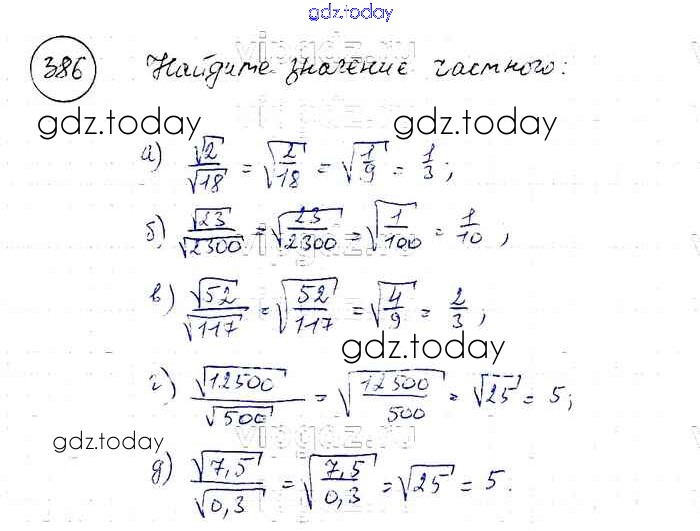 gdz.today
386 Найдите значение частного:
gdz.today gdz.today
а) √2/√18 = √(2/18) = √(1/9) = 1/3;
б) √23/√2300 = √(23/2300) = √(1/100) = 1/10;
в) √52/√117 = √(52/117) = √(4/9) = 2/3;
gdz.today
г) √12500/√500 = √(12500/500) = √25 = 5;
gdz.today
д) √7,5/√0,3 = √(7,5/0,3) = √25 = 5.